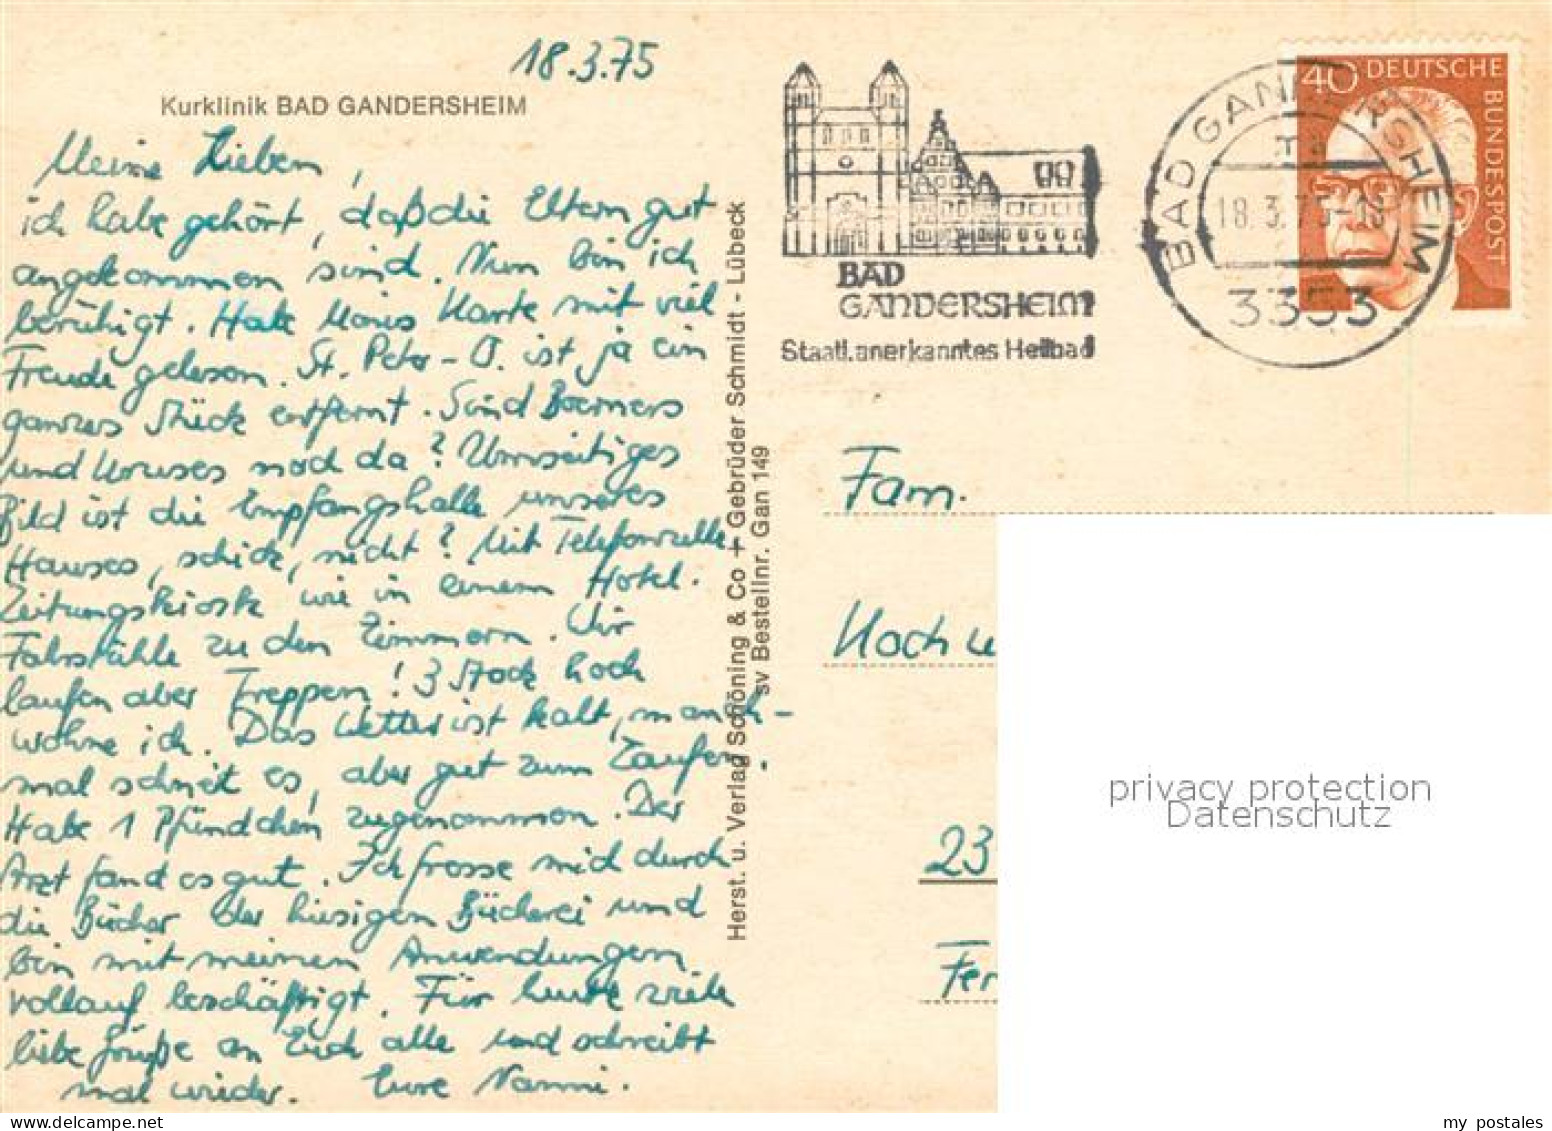 18.3.75
Kurklinik BAD GANDERSHEIM
Meine Lieben,
ich habe gehört, daß die Eltern gut
angekommen sind. Nun bin ich
beruhigt. Habe Karte mit viel
Freude gelesen. St. Peter-O. ist ja ein
ganzes Stück entfernt. Sind Boerners
und Kruses noch da? Umseitiges
Bild ist die Empfangshalle unseres
Hauses, schick, nicht? Mit Telefonzelle,
Zeitungskiosk wie in einem Hotel.
Fahrstühle zu den Zimmern. Wir
laufen aber Treppen! 3 Stock hoch
wohne ich. Das Wetter ist kalt, manch-
mal schneit es, aber gut zum Laufen.
Habe 1 Pfündchen zugenommen. Der
Arzt fand es gut. Ich fresse mich durch
die Bücher der hiesigen Bücherei und
bin mit meinen Anwendungen
vollauf beschäftigt. Für heute viele
liebe Grüße an Euch alle und schreibt
mal wieder. Eure Nanni.
Herst. u. Verlag Schöning & Co + Gebrüder Schmidt - Lübeck
sv Bestellnr. Gan 149
BAD
GANDERSHEIM
Staatl.anerkanntes Heilbad
BAD GANDERSHEIM
18.3.75-18
3353
40 DEUTSCHE
BUNDESPOST
Fam.
Koch u
23
Fer
privacy protection
Datenschutz
my postales